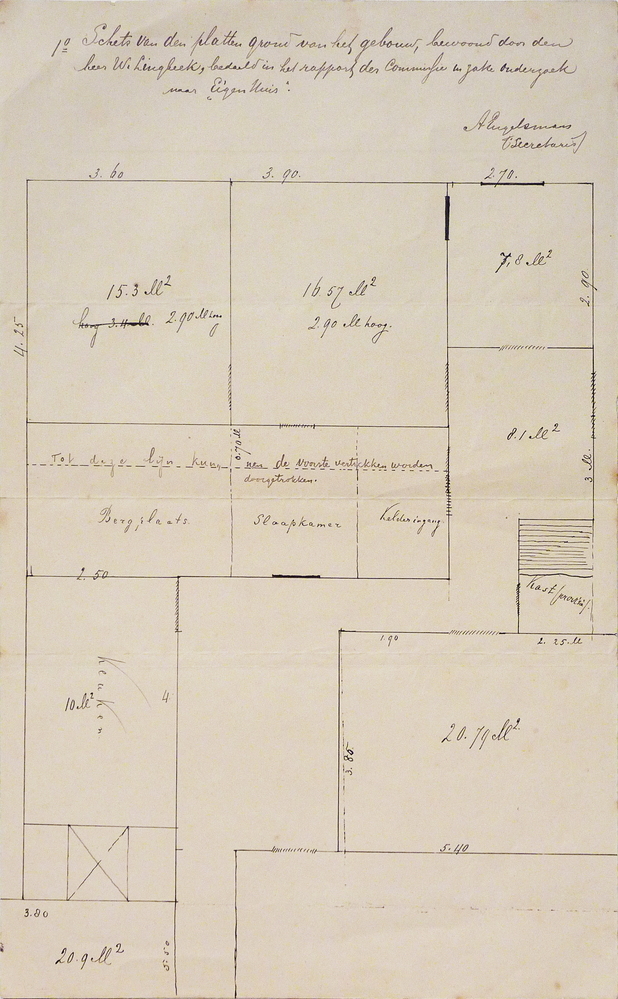 1º Schets van den platten grond van het gebouw, bewoond door den
heer W. Lingbeek, bedoeld in het rapport der Commissie in zake onderzoek
naar "Eigen Huis".
A Engelsman
(Secretaris)
3.60 3.90. 2.70.
7,8 M²
15.3 M² 16.57 M²
hoog 3.4 M. 2.90 M hoog 2.90 M hoog.
2.90
4.25
8.1 M²
0.70 M
Tot deze lijn kunnen de voorste vertrekken worden
doorgetrokken.
3 M
Bergplaats. Slaapkamer Kelderingang.
2.50
Kast
1.90 2.25 M
Keuken
10 M² 4.
20.79 M²
3.85
5.40
3.80
20.9 M²
5.50